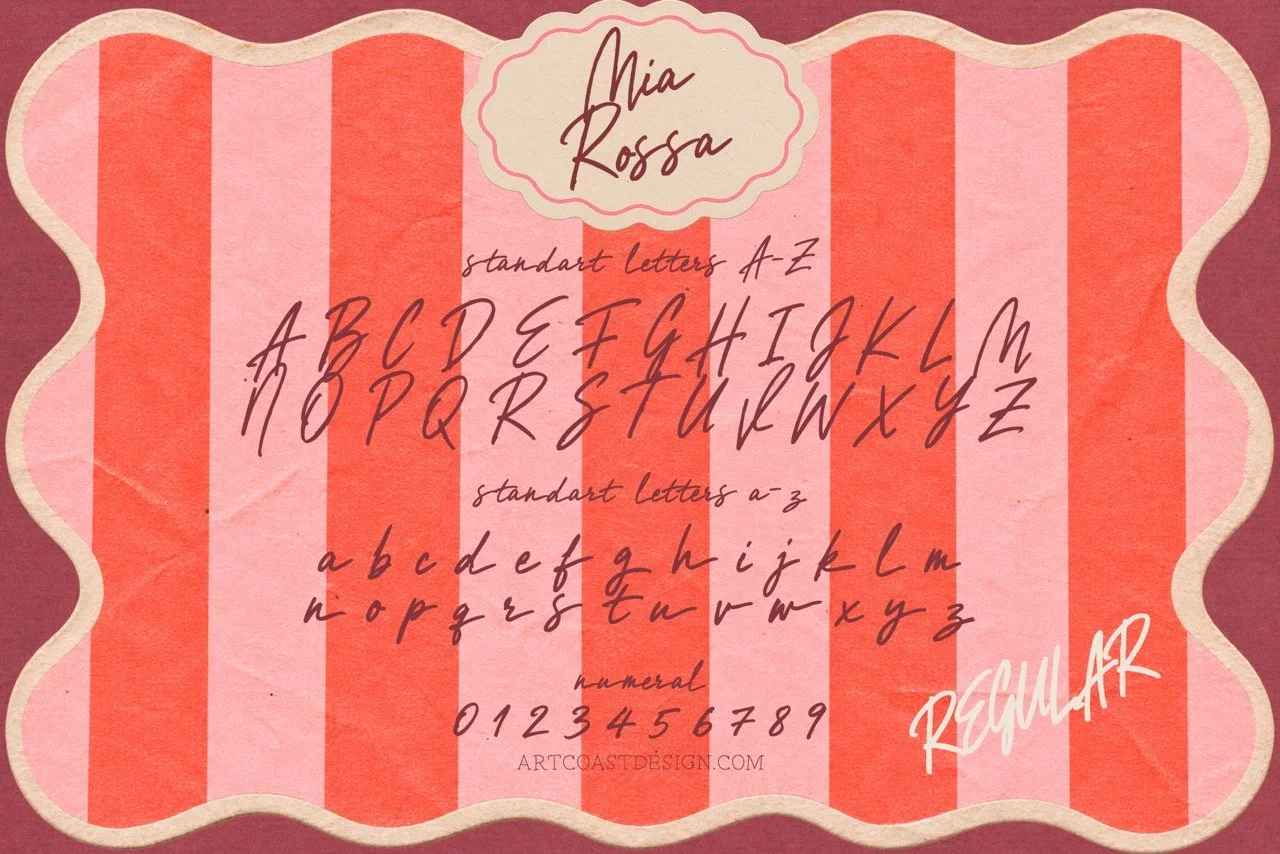 Mia
Rossa
standart letters A-Z
A B C D E F G H I J K L M
N O P Q R S T U V W X Y Z
standart letters a-z
a b c d e f g h i j k l m
n o p q r s t u v w x y z
numeral
0 1 2 3 4 5 6 7 8 9
REGULAR
ARTCOASTDESIGN.COM